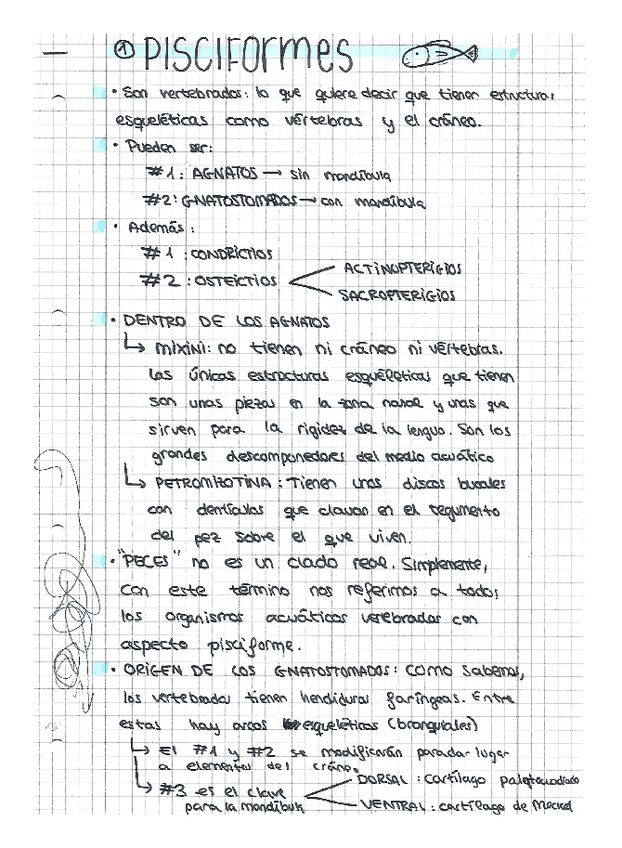 ① PISCIFORMES
• Son vertebrados: lo que quiere decir que tienen estructuras
esqueléticas como vértebras y el cráneo.
• Pueden ser:
#1: AGNATOS → sin mandíbula
#2: GNATOSTOMADOS → con mandíbula
• Además:
#1: CONDRICTIOS
#2: OSTEICTIOS
ACTINOPTERIGIOS
SACROPTERIGIOS
• DENTRO DE LOS AGNATOS
↳ MIXINI: no tienen ni cráneo ni vértebras.
Las únicas estructuras esqueléticas que tienen
son unas piezas en la zona nasal y unas que
sirven para la rigidez de la lengua. Son los
grandes descomponedores del medio acuático
↳ PETROMIZOTINA: Tienen unos discos bucales
con dentículas que clavan en el tegumento
del pez sobre el que viven.
• "PECES" no es un clado real. Simplemente,
con este término nos referimos a todos
los organismos acuáticos vertebrados con
aspecto pisciforme.
• ORIGEN DE LOS GNATOSTOMADOS: como sabemos,
los vertebrados tienen hendiduras faríngeas. Entre
estas hay arcos esqueléticos (branquiales)
↳ El #1 y #2 se modificarán para dar lugar
a elementos del cráneo.
↳ #3 es el clave
para la mandíbula
DORSAL: cartílago palatocuadrado
VENTRAL: cartílago de Meckel